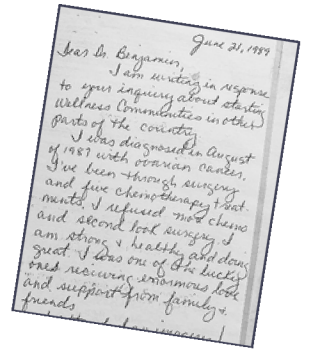 June 21, 1989
Dear Dr. Benjamin,
I am writing in response
to your inquiry about starting
Wellness Communities in other
parts of the country.
I was diagnosed in August
of 1987 with ovarian cancer.
I've been through surgery
and five chemotherapy treat-
ments. I refused more chemo
and second look surgery. I
am strong & healthy and doing
great. I was one of the lucky
ones receiving enormous love
and support from family &
friends